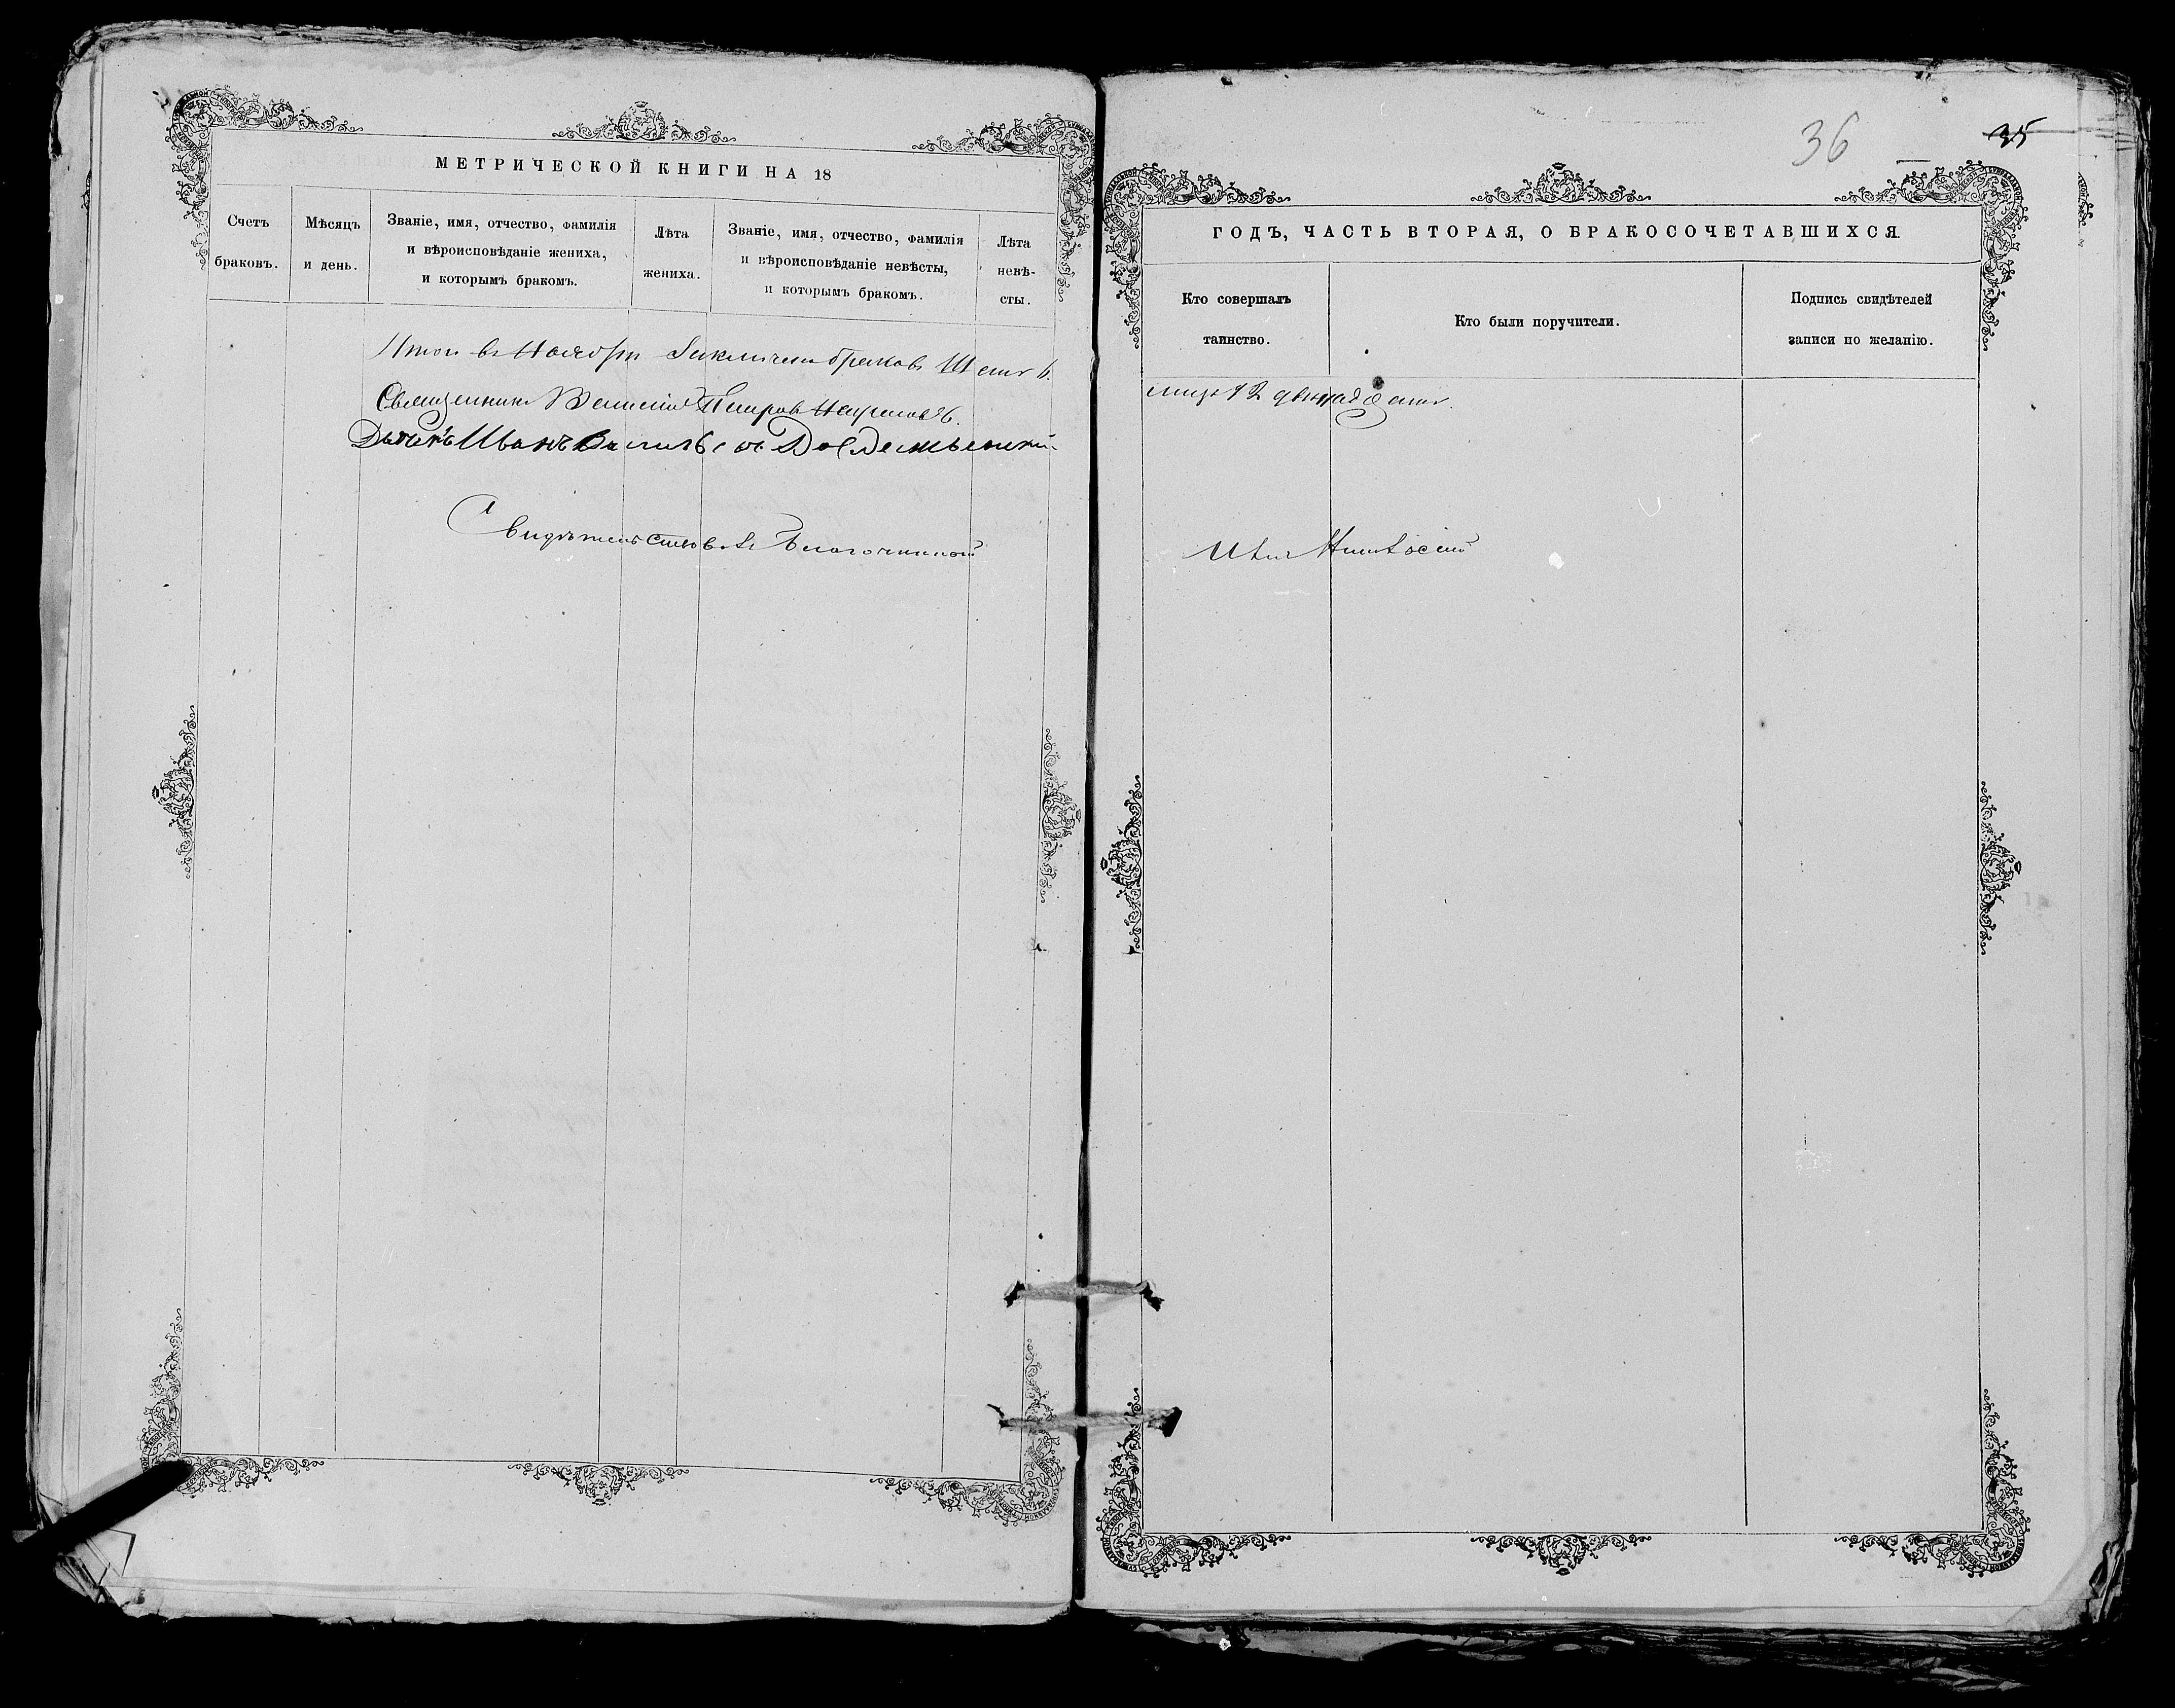 МЕТРИЧЕСКОЙ КНИГИ НА 18
Счетъ браковъ.
Мѣсяцъ и день.
Званіе, имя, отчество, фамилія
и вѣроисповѣданіе жениха,
и которымъ бракомъ.
Лѣта жениха.
Званіе, имя, отчество, фамилія
и вѣроисповѣданіе невѣсты,
и которымъ бракомъ.
Лѣта невѣ-
сты.
Итого въ Ноябрѣ браковъ
Священникъ Василій Петровъ
Дьячекъ Иванъ
Свидѣтельствовалъ Благочинный
36
35
ГОДЪ, ЧАСТЬ ВТОРАЯ, О БРАКОСОЧЕТАВШИХСЯ
Кто совершалъ
таинство.
Кто были поручители.
Подпись свидѣтелей
записи по желанію.
лицъ 12 двѣнадцать.